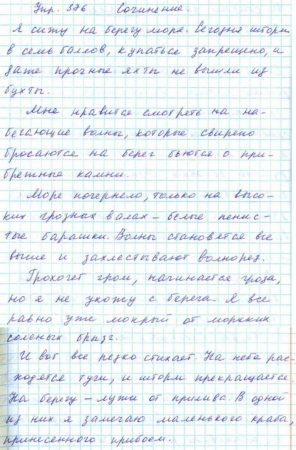 Упр. 376 Сочинение.
Я сижу на берегу моря. Сегодня шторм
в семь баллов, купаться запрещено, и
даже прочные яхты не вышли из
бухты.
Мне нравится смотреть на на-
бегающие волны, которые свирепо
бросаются на берег бьются о при-
брежные камни.
Море почернело, только на высо-
ких грозных валах – белые пенис-
тые барашки. Волны становятся все
выше и захлестывают волнорез.
Грохочет гром, начинается гроза,
но я не ухожу с берега. Я все
равно уже мокрый от морских
соленых брызг.
И вот все резко стихает. На небе рас-
ходятся тучи, и шторм прекращается.
На берегу – лужи от прилива. В одной
из них я замечаю маленького краба,
принесенного прибоем.